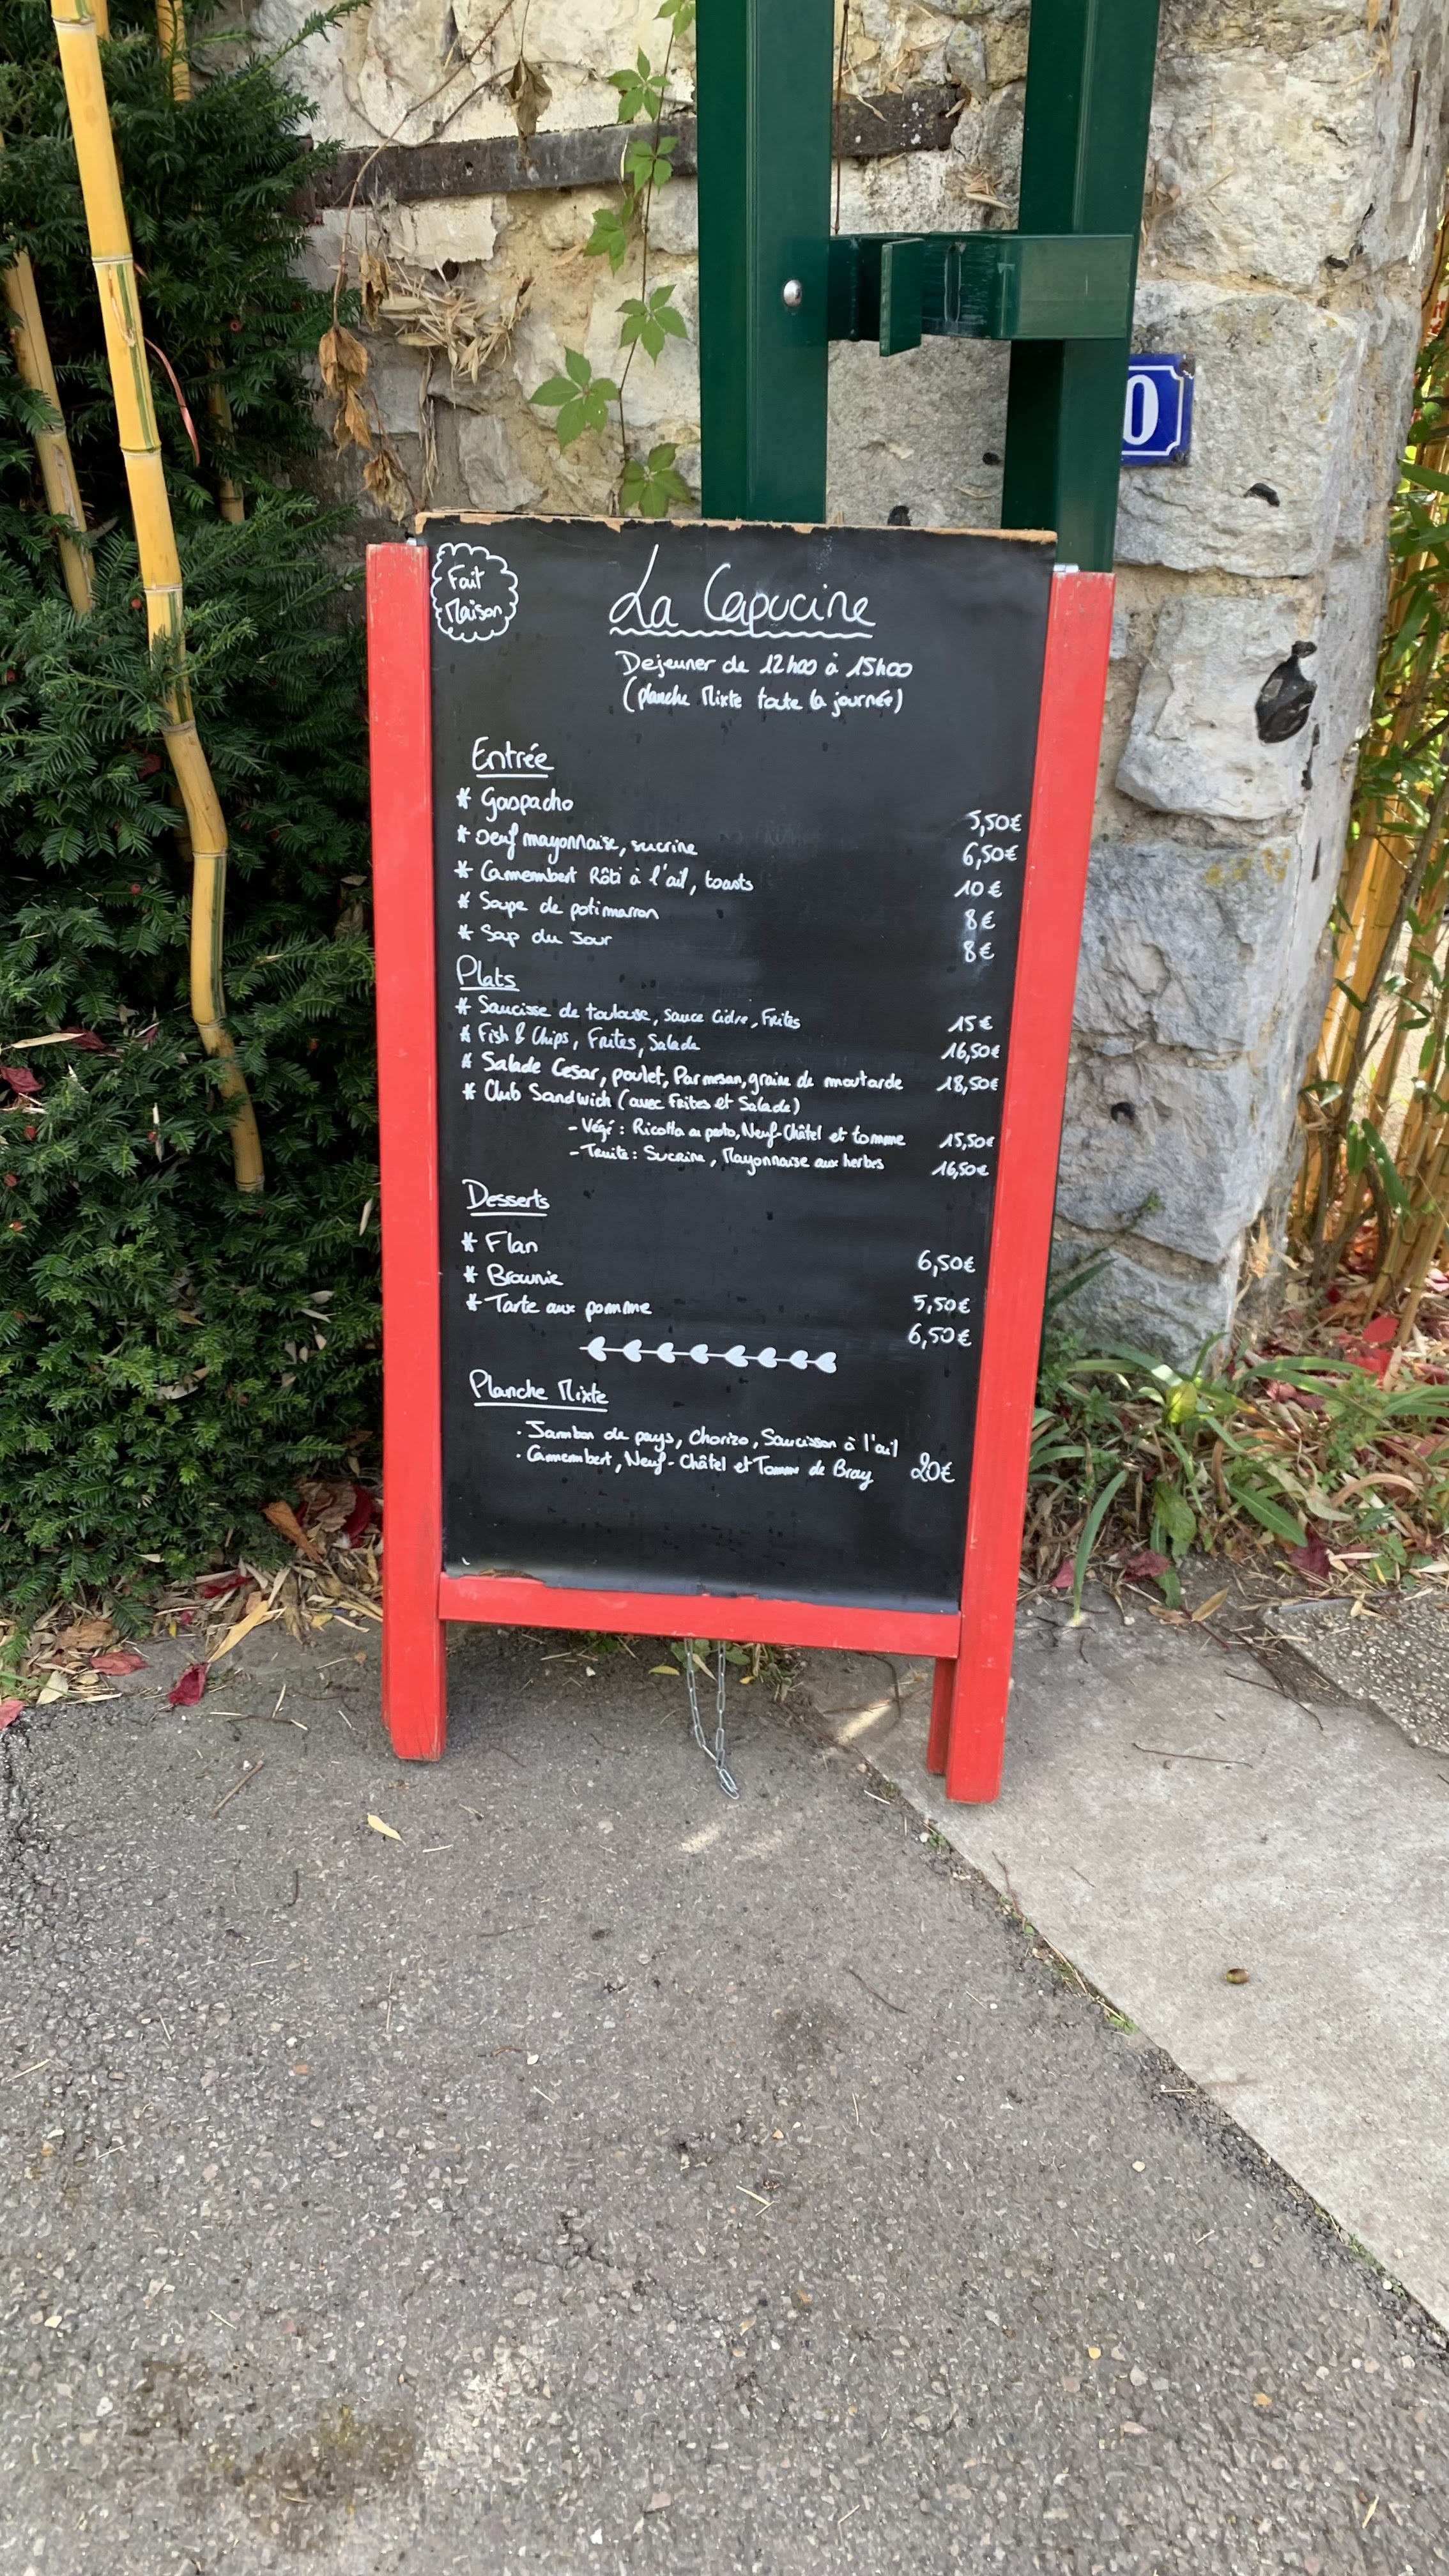 Fait
Maison
La Capucine
Dejeuner de 12h00 à 15h00
(planche Mixte toute la journée)
Entrée
* Gaspacho 5,50€
* oeuf mayonnaise, sucrine 6,50€
* Camembert Rôti à l'ail, toasts 10€
* Soupe de potimarron 8€
* Soup du Jour 8€
Plats
* Saucisse de toulouse, sauce Cidre, Frites 15€
* Fish & Chips, Frites, Salade 16,50€
* Salade Cesar, poulet, Parmesan, graine de moutarde 18,50€
* Club Sandwich (avec Frites et Salade)
- Végé : Ricotta au pesto, Neuf-Châtel et tomme 15,50€
- Truite : Sucrine, Mayonnaise aux herbes 16,50€
Desserts
* Flan 6,50€
* Brownie 5,50€
* Tarte aux pomme 6,50€
Planche Mixte
· Jambon de pays, Chorizo, Saucisson à l'ail
· Camembert, Neuf-Châtel et Tomme de Bray 20€
0